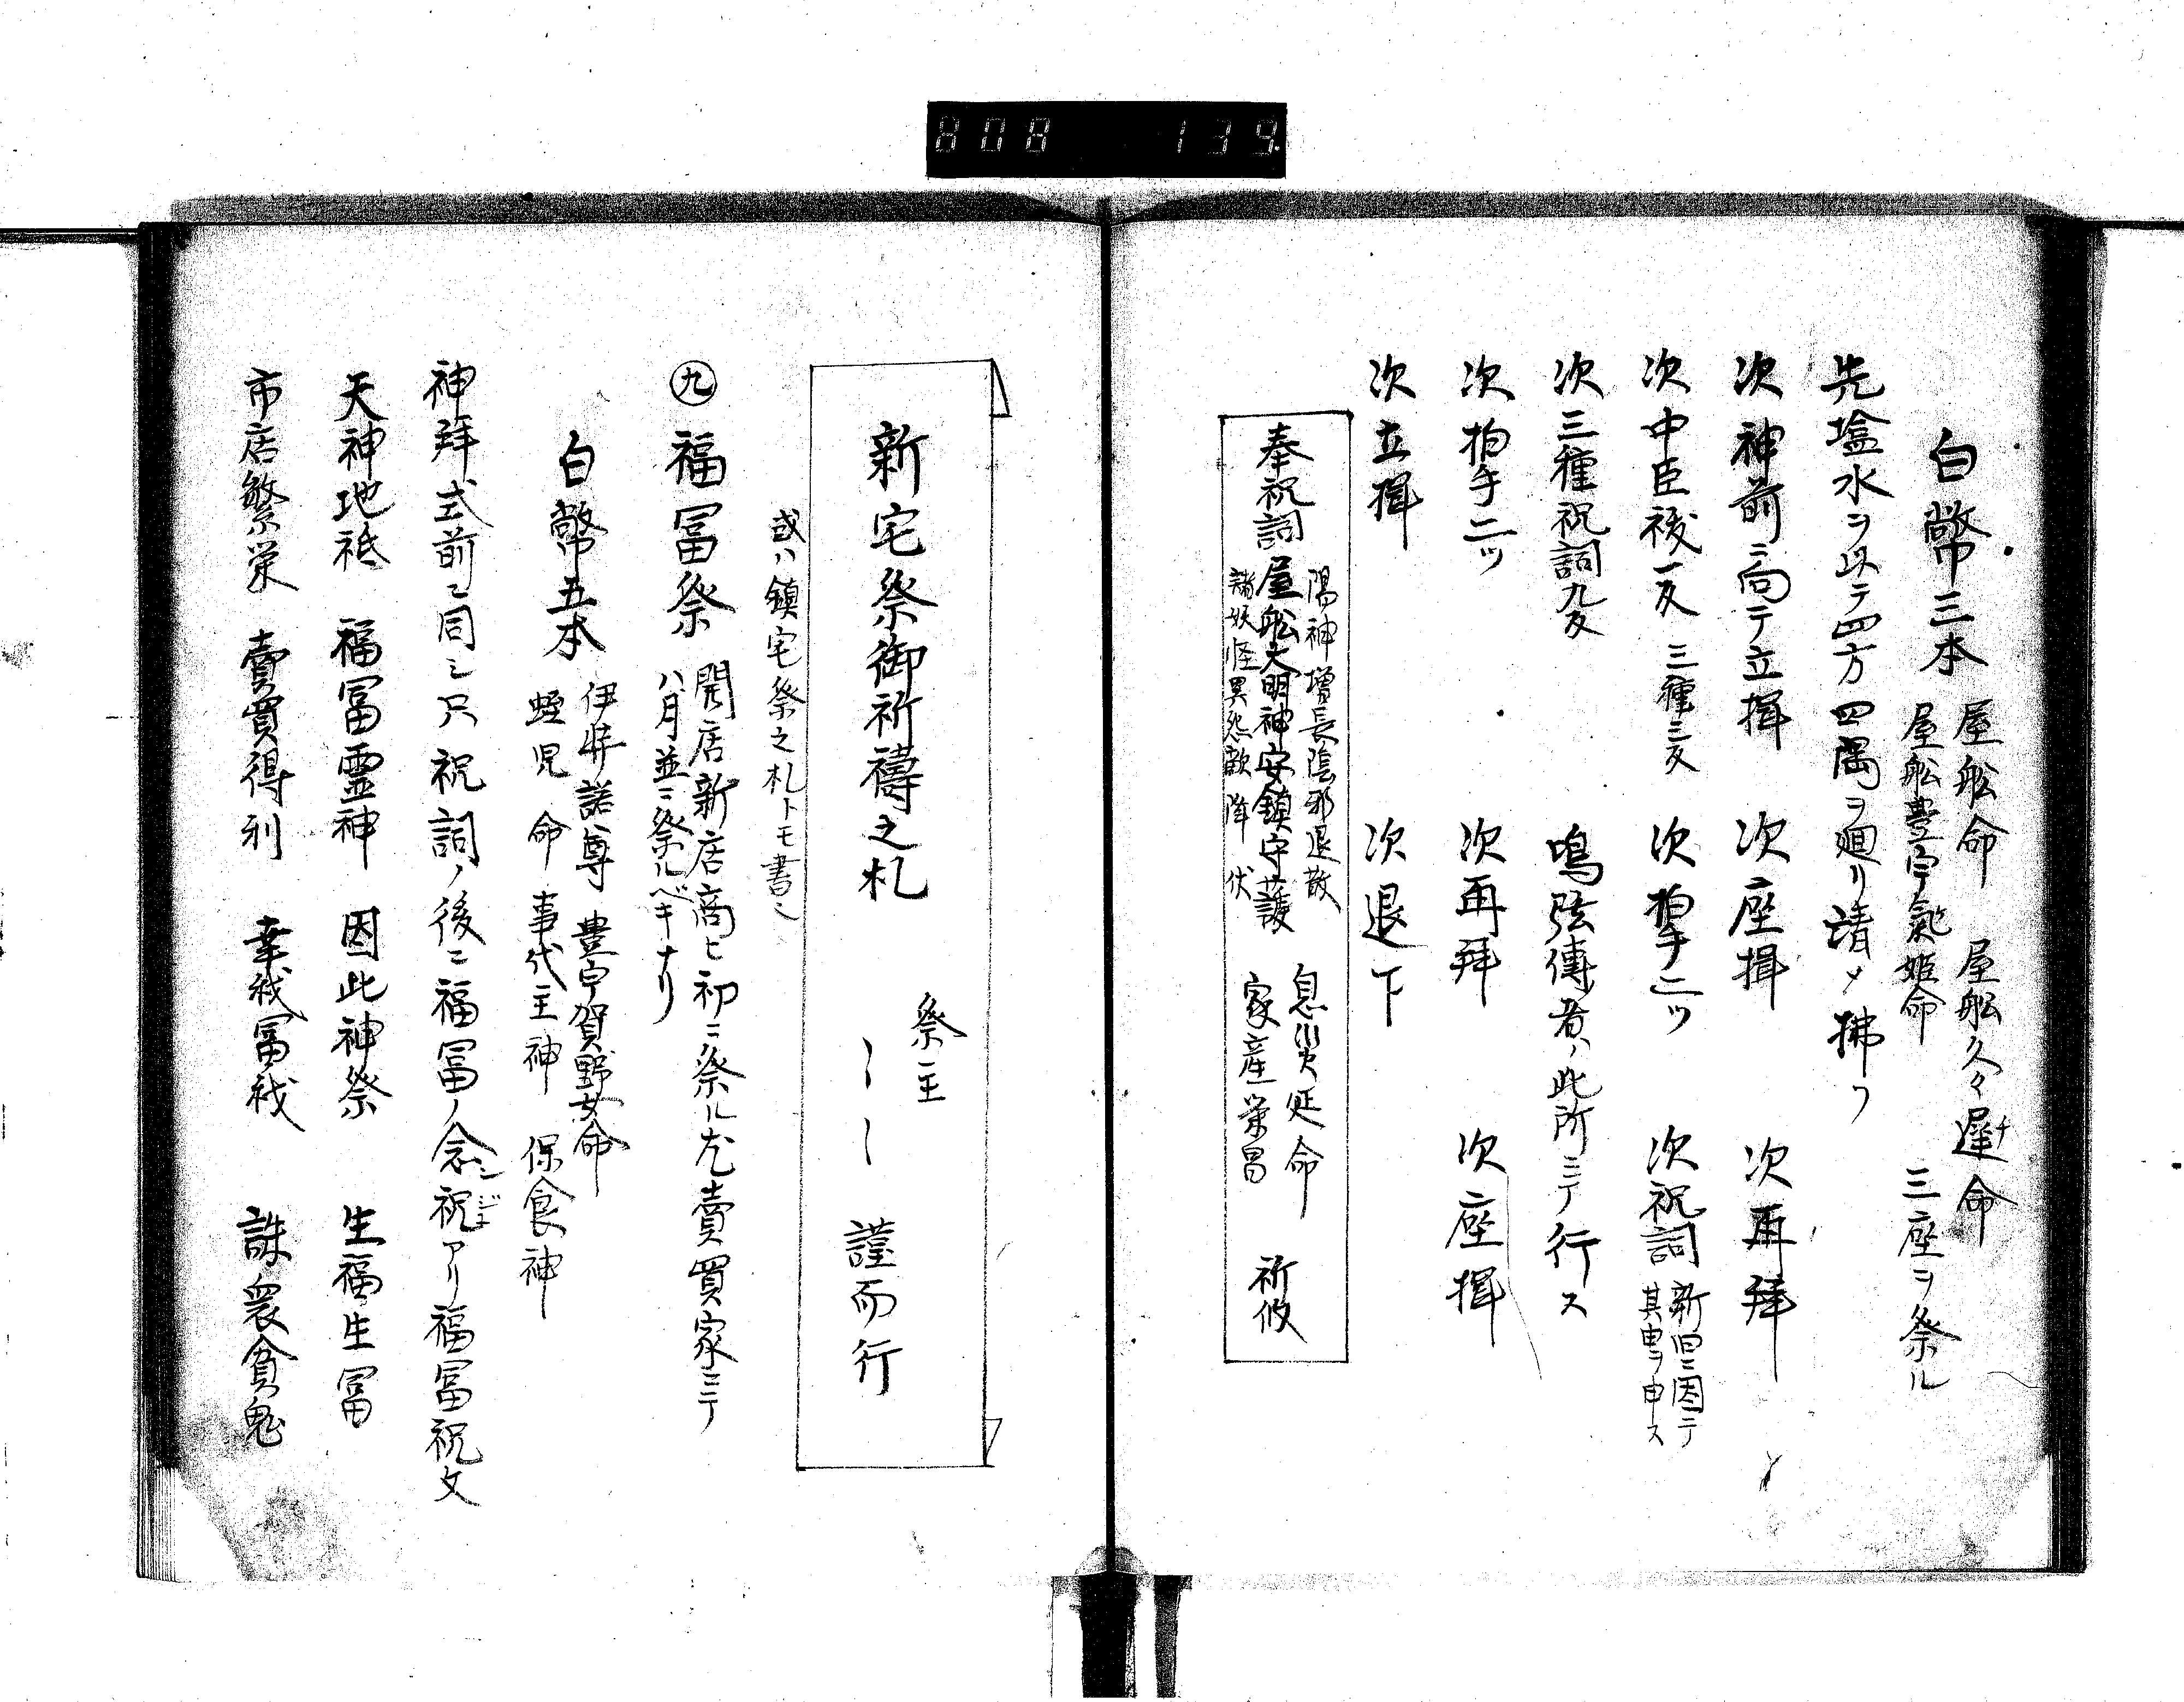 808 139
白幣三本 屋船命 屋船久々遅命
屋船豊宇氣姫命 三座ヲ祭ル
先塩水ヲ以テ四方四隅ヲ廻リ清メ拂フ
次神前ニ向テ立揖 次座揖 次再拜
次中臣祓一反 三種三反 次拍手二ツ 次祝詞 新旧ニ因テ
其申ヲ申ス
次三種祝詞九反 鳴弦傳者ハ此所ニテ行ス
次拍手二ツ 次再拜 次座揖
次立揖 次退下
陽神增長陰邪退散 息災延命
奉祝詞屋船大明神安鎮守護 祈攸
諸妖怪異怨敵降伏 家産栄昌
祭主
新宅祭御祈禱之札 謹而行
或ハ鎮宅祭之札トモ書く
㊈福冨祭 開店新店商ヒ初ニ祭ル尤賣買家ニテ
ハ月並ニ祭ルベキナリ
白幣五本 伊弉諾尊 豊宇賀野女命
蛭児命 事代主神 保食神
神拜式前ニ同シ只祝詞ノ後ニ福冨ノ念祝アリ福冨祝文
天神地祇 福冨霊神 因此神祭 生福生冨
市店繁栄 賣買得利 幸我冨我 誅衆貧鬼